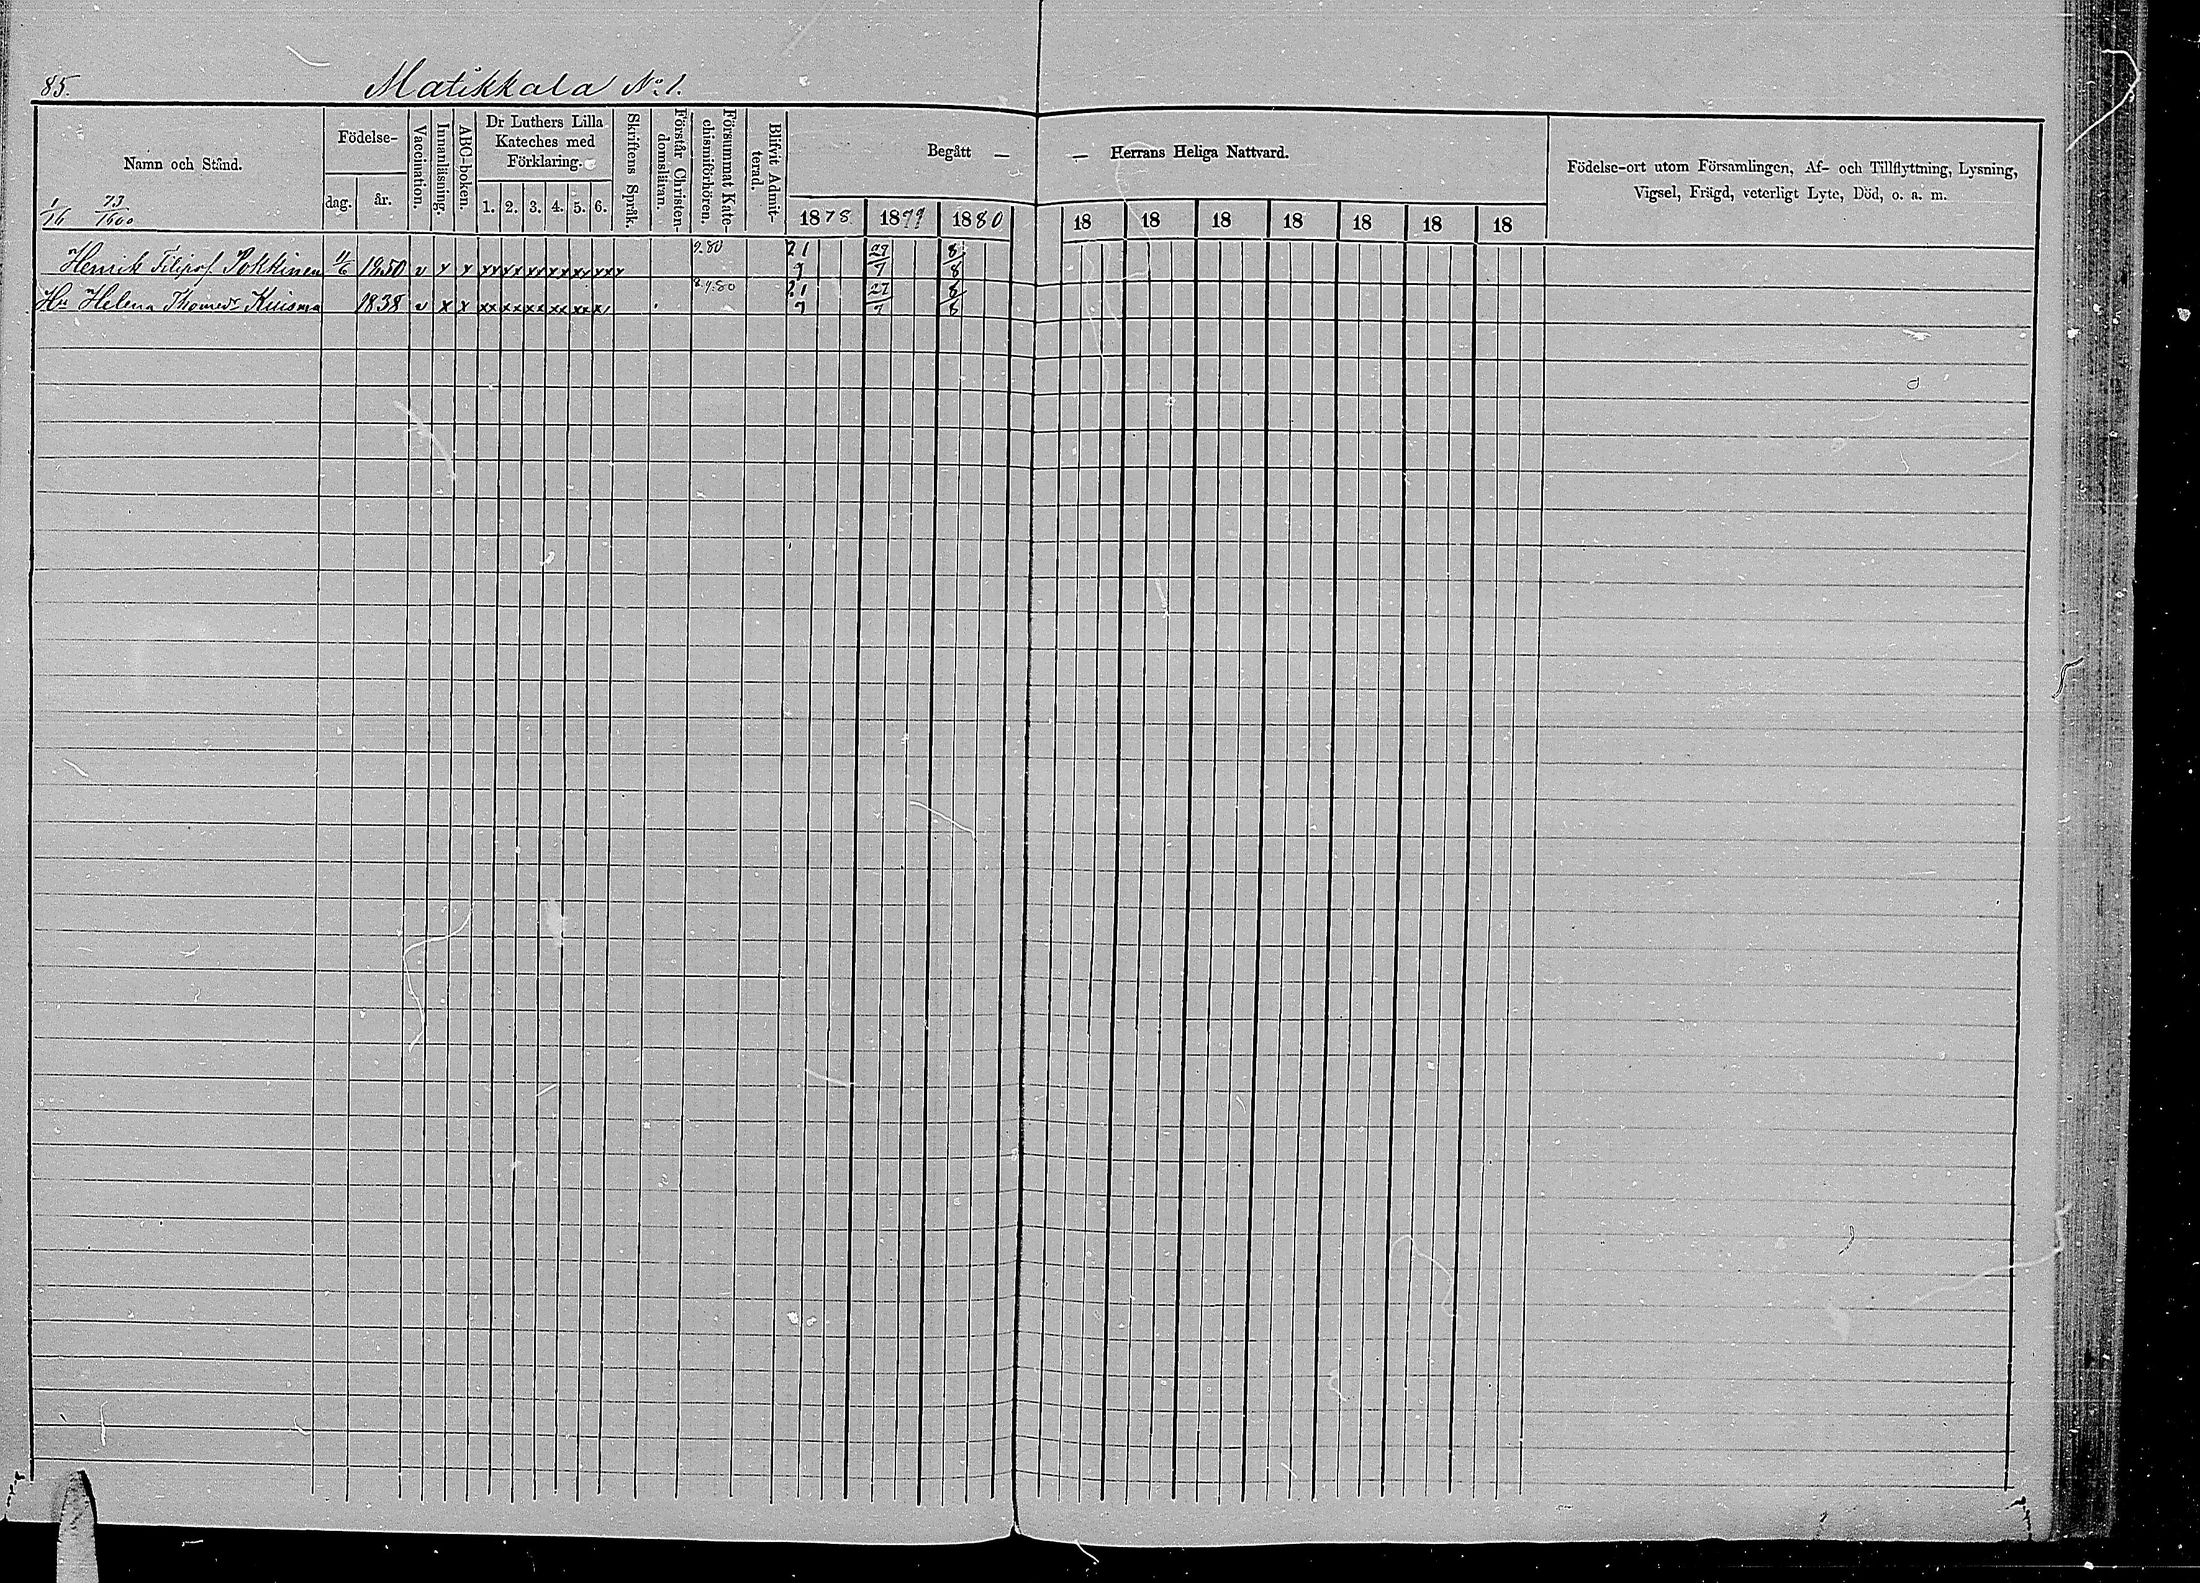 85. Matikkala No 1.
Namn och Stånd.
1/16 73/1600
Födelse-
dag. år.
Vaccination.
Innanläsning.
ABC-boken.
Dr Luthers Lilla
Kateches med
Förklaring.
1. 2. 3. 4. 5. 6.
Skriftens Språk.
Förstår Christen-
domsläran.
Försummat Kate-
chismiförhören.
Blifvit Admit-
terad.
Begått —
— Herrans Heliga Nattvard.
1878 1879 1880 18 18 18 18 18 18 18
Födelse-ort utom Församlingen, Af- och Tillflyttning, Lysning,
Vigsel, Frägd, veterligt Lyte, Död, o. a. m.
Henrik Filipsf. Pokkinen 11/6 1850 v x x xx xx xx xx xx xx x 9.80 21/7 27/7 8/8
Hu Helena Thomedr Kuisma 1838 v x x xx xx xx xx xx x 8.9.80 21/7 27/7 8/8